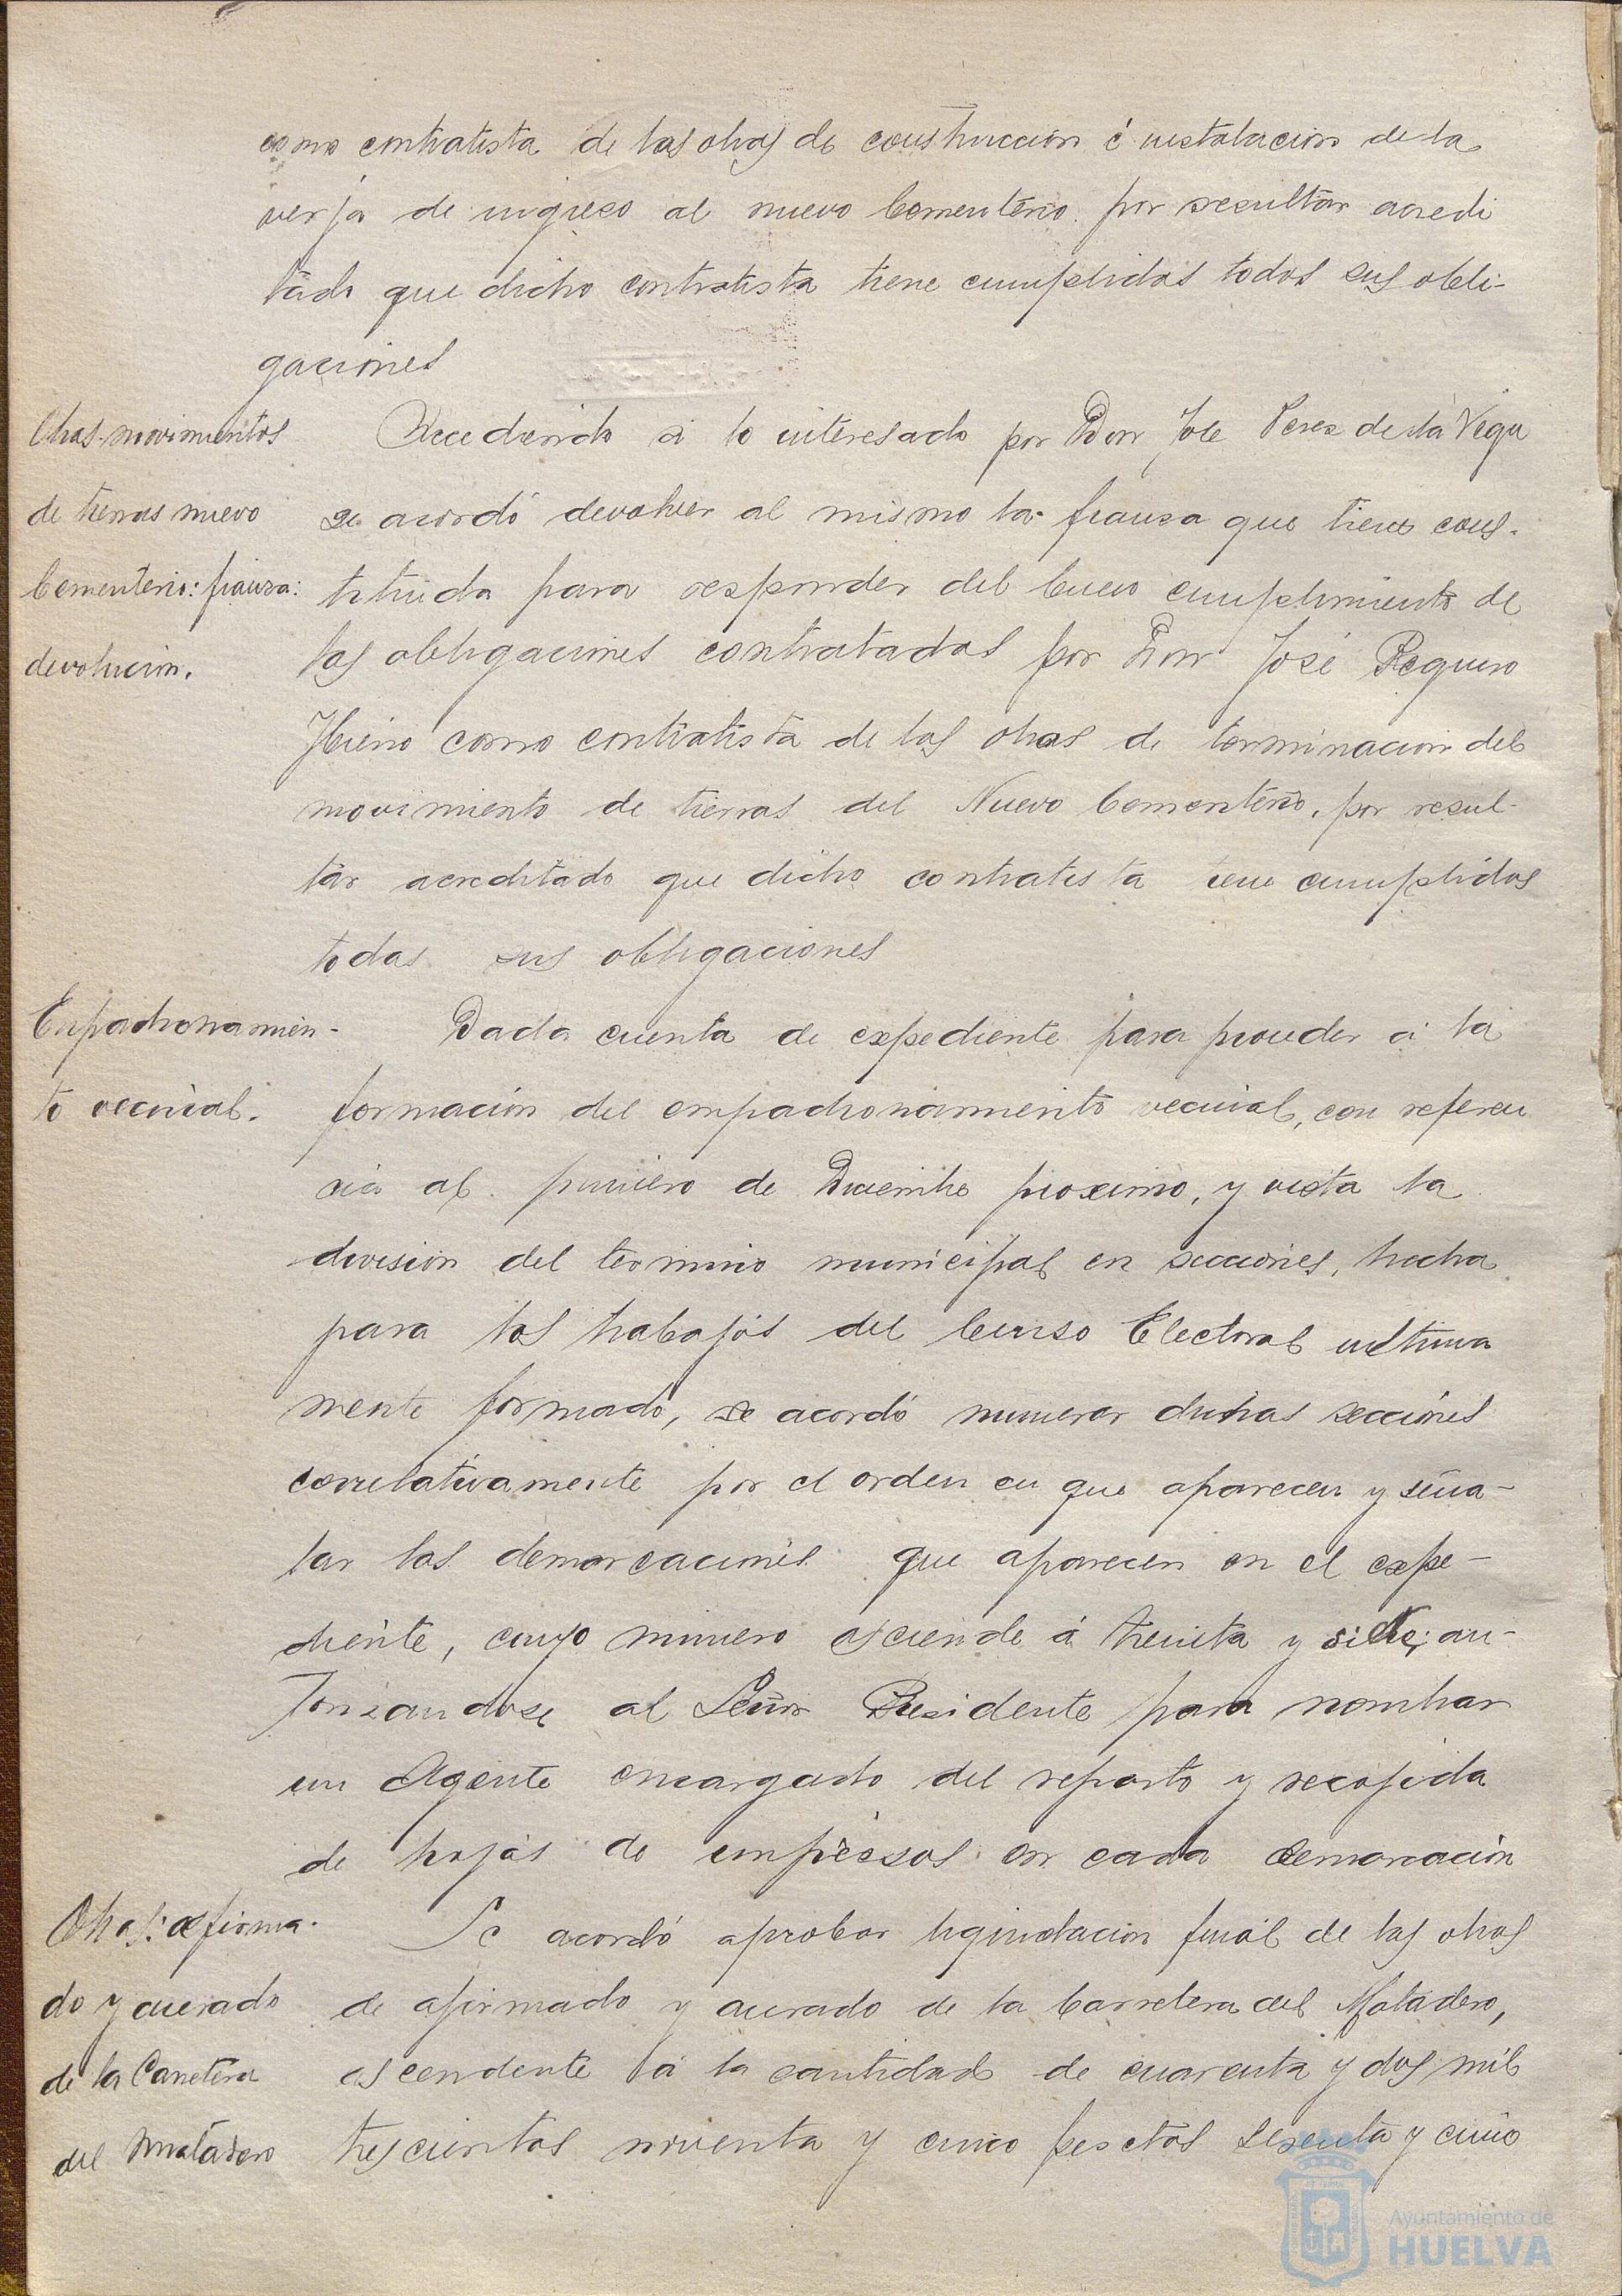 como contratista de las obras de construccion é instalacion de la
verja de ingreso al nuevo Cementerio por resultar acredi
tado que dicho contratista tiene cumplidas todas sus obli-
gaciones
Obras movimientos
de tierras nuevo
Cementerio: fianza:
devolucion.
Accediendo a lo interesado por Don José Perez de la Vega
se acordó devolver al mismo la fianza que tiene cons-
tituida para responder del buen cumplimiento de
las obligaciones contratadas por Don José Requero
como contratista de las obras de terminacion del
movimiento de tierras del Nuevo Cementerio, por resul-
tar acreditado que dicho contratista tiene cumplidas
todas sus obligaciones
Empadronamien-
to vecinal.
Dada cuenta de expediente para proceder a la
formacion del empadronamiento vecinal, con referen
cia al primero de Diciembre proximo, y vista la
division del termino municipal en secciones, hecha
para los trabajos del Censo Electoral ultima
mente formado, se acordó numerar dichas secciones
correlativamente por el orden en que aparecen y seña-
lar las demarcaciones que aparecen en el expe-
diente, cuyo numero asciende á treinta y siete; au-
torizandose al Señor Presidente para nombrar
un Agente encargado del reparto y recojida
de hojas de impresos en cada demarcacion
Obras: afirma-
do y acerado
de la Carretera
del Matadero
Se acordó aprobar liquidacion final de las obras
de afirmado y acerado de la Carretera del Matadero,
ascendente á la cantidad de cuarenta y dos mil
trescientas noventa y cinco pesetas sesenta y cinco
Ayuntamiento de
HUELVA